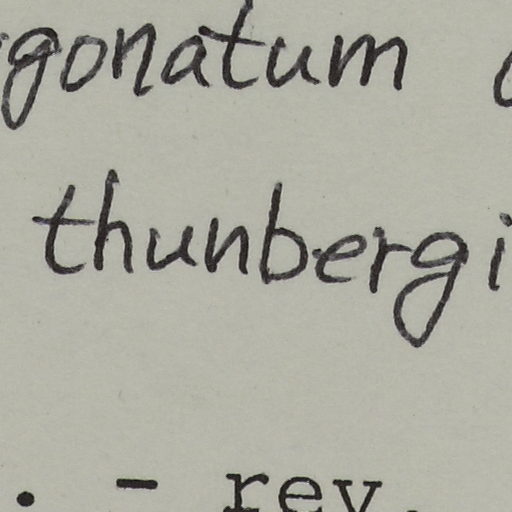 gonatum
thunbergi
. - rev.